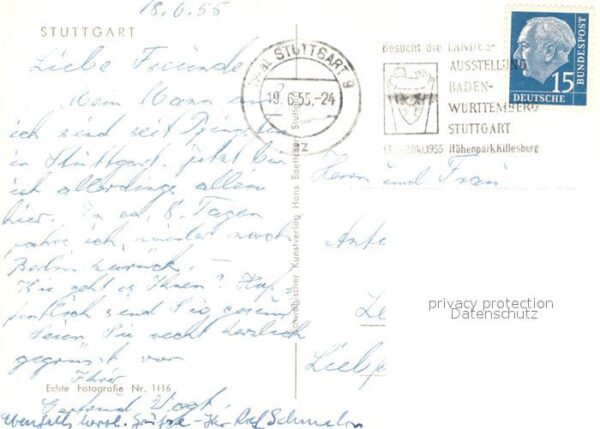 18.6.55
STUTTGART
Liebe Freunde
Mein Mann und
ich sind seit Pfingsten
in Stuttgart. jetzt bin
ich allerdings allein
hier. In ca. 8. Tagen
fahre ich wieder nach
Berlin zurück. -
Wie geht es Ihnen? Hof-
fentlich sind Sie gesund
Seien Sie recht herzlich
gegrüsst von
Ihrer
Echte Fotografie Nr. 1116
Gertrud
Ebenfalls herzl. Grüße - Ihr
STUTTGART 9
19.6.55.-24
z
Besucht die LANDES-
AUSSTELLUNG
BADEN-
WÜRTTEMBERG
STUTTGART
1955 Höhenpark Killesberg
15
DEUTSCHE
BUNDESPOST
Schwäbischer Kunstverlag Hans Boettcher Stuttgart
Herrn und Frau
privacy protection
Datenschutz